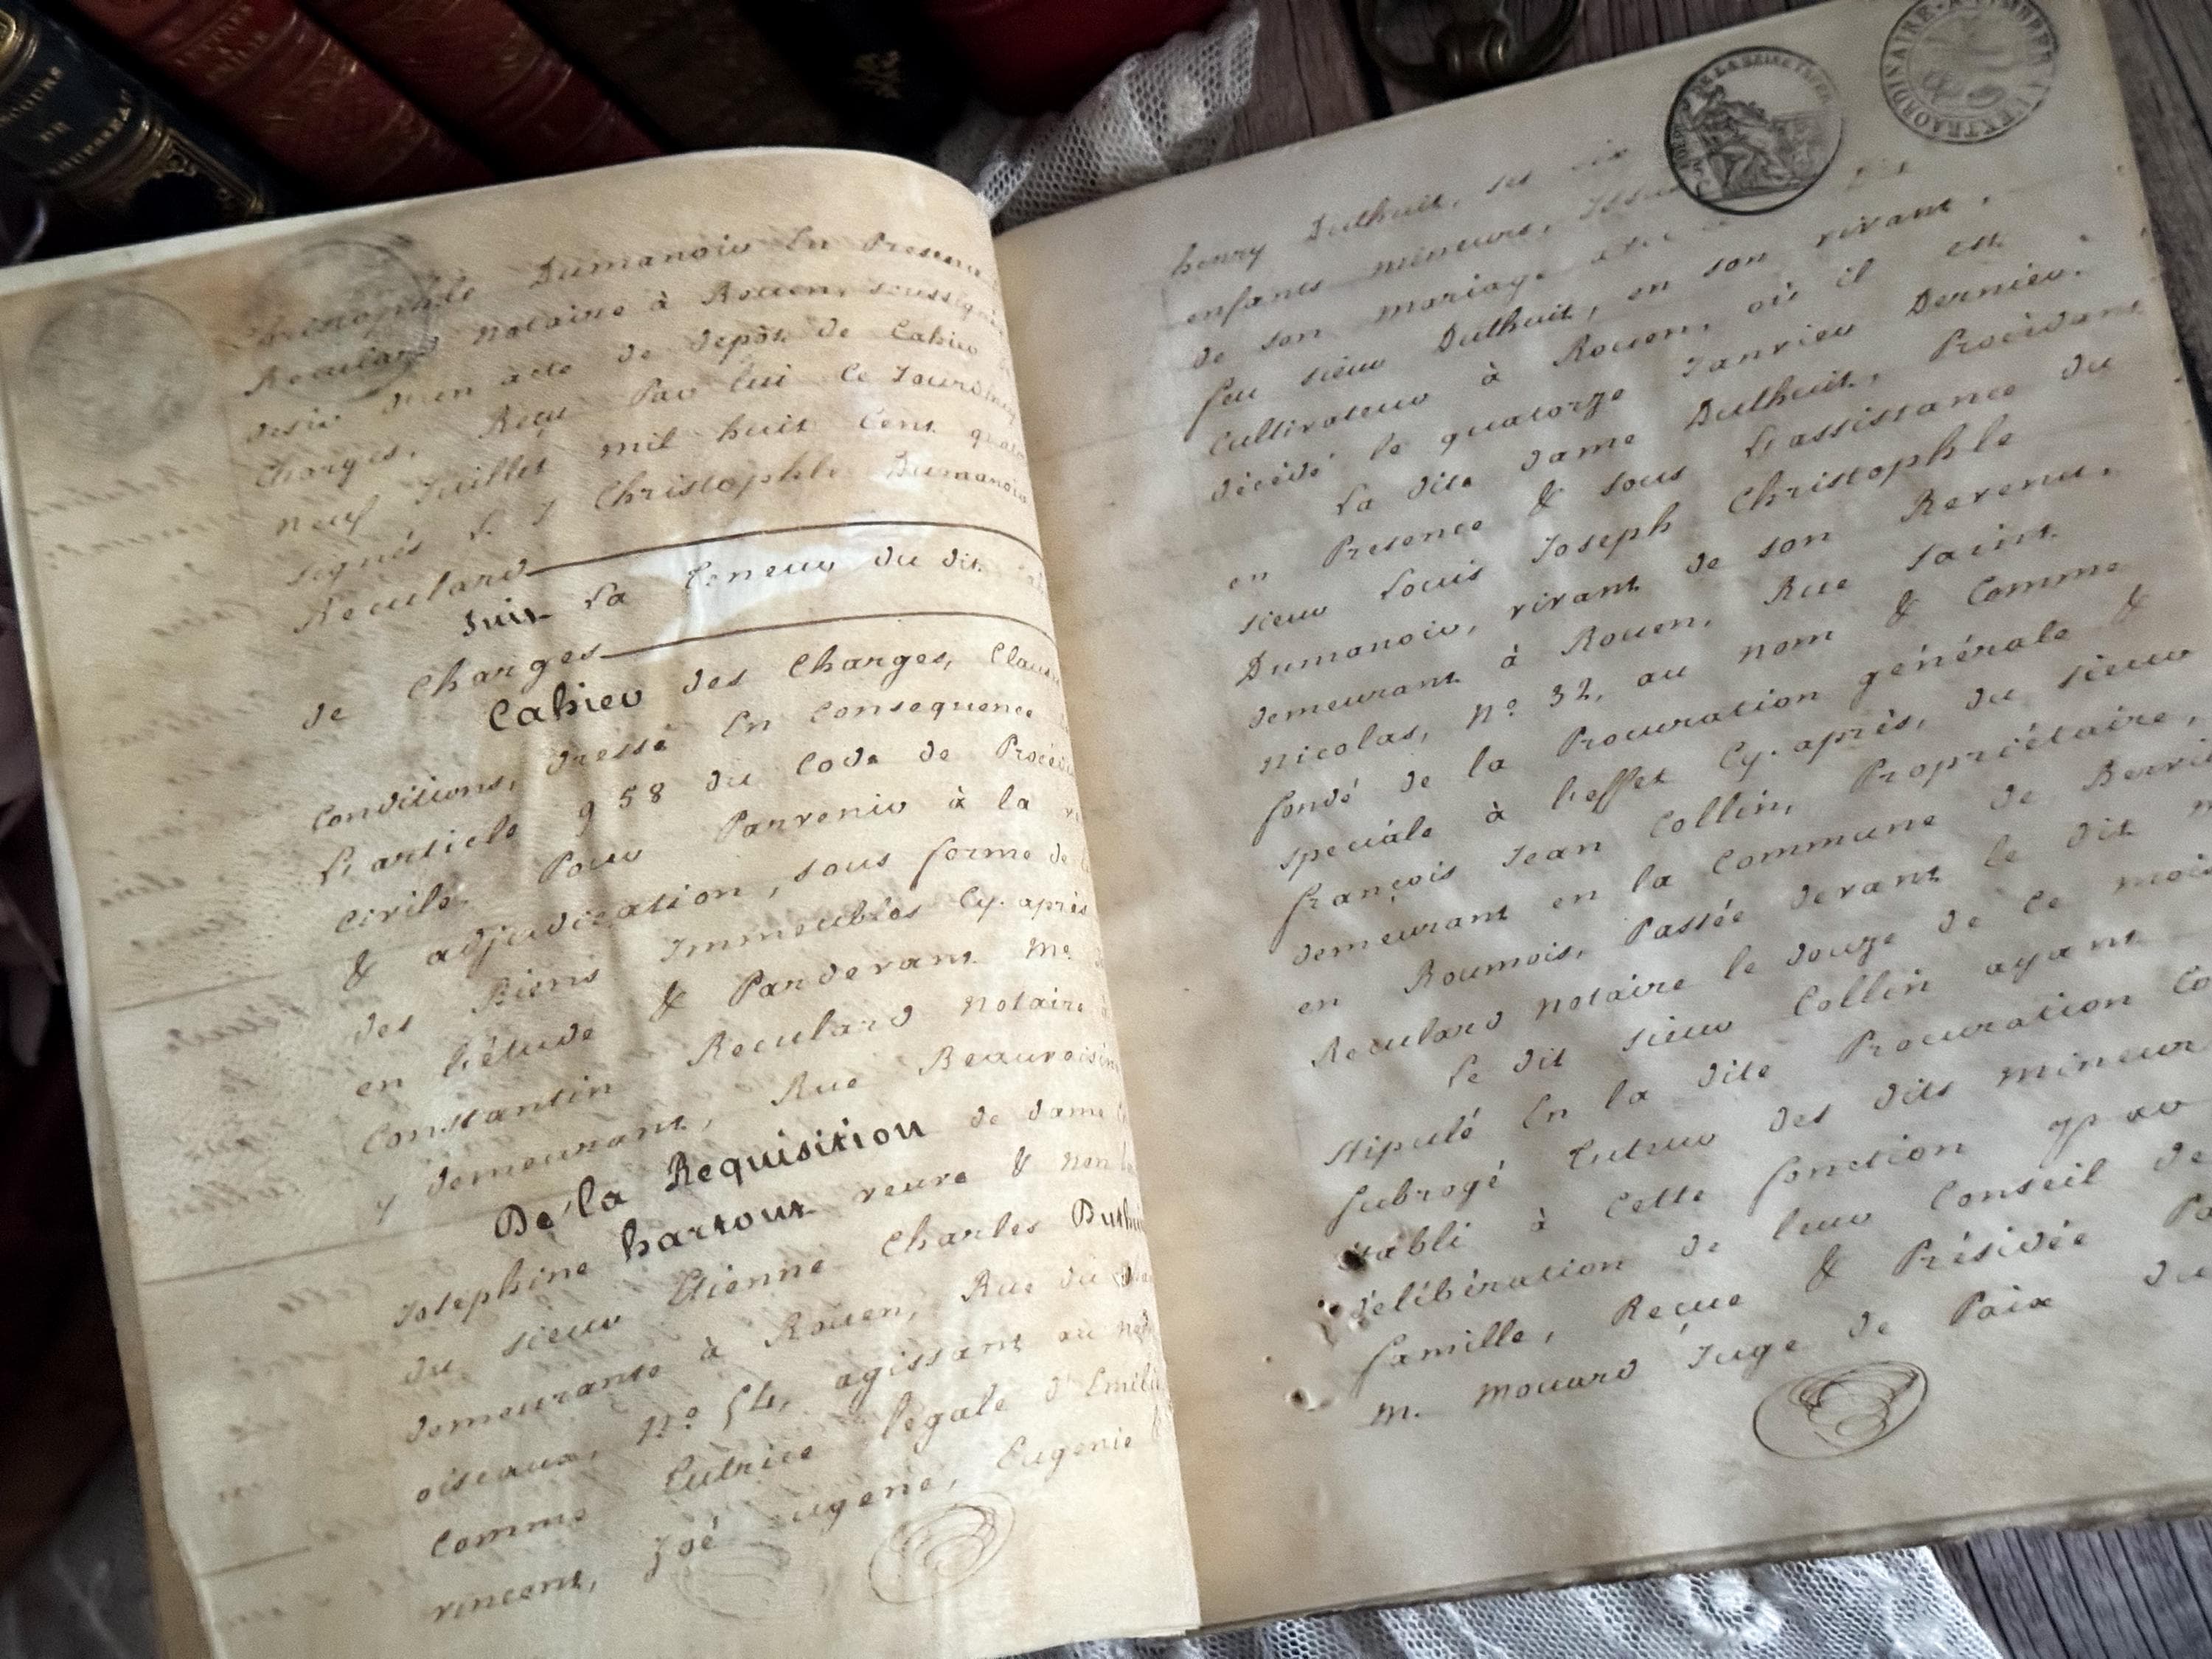 Christophle Dumanoir En Presence
Recular notaire à Rouen, soussigné
acte de depôt de Cahier
Charges, Reçu Par lui Ce Jourd'huy
neuf Juillet mil huit Cent
signés L. J Christophle Dumanoir
Recular
Suit La teneur du dit
de Charges
Cahier des Charges, Clauses
Conditions, dressé En Consequence
L'article 958 du Code de Procédu
Civile Pour Parvenir à la
& adjudication, sous forme de
des Biens Immeubles Cy. après
en l'étude & Pardevant Me
Constantin Recular notaire à
y demeurant, Rue Beauvoisine
De la Requisition de dame
Josephine hartout veuve & non
du sieur Etienne Charles Duthuit
demeurante à Rouen, Rue du
oiseaux, no 54, agissant au nom
Comme tutrice legale d'Emile
vincent, Zoé Eugene, Eugenie
henry Duthuit, ses six
enfants mineurs, Issus
de son mariage avec
feu sieur Duthuit, en son vivant,
Cultivateur à Rouen, où il est
décédé le quatorze Janvier Dernier.
La dite dame Duthuit, Procédant
en Presence & sous L'assistance du
sieur Louis Joseph Christophle
Dumanoir, vivant de son Revenu,
demeurant à Rouen, Rue saint
nicolas, no 32, au nom & Comme
fondé de la Procuration générale &
speciale à l'effet Cy. après, du sieur
françois Jean Collin, Propriétaire,
demeurant en la Commune de
en Roumois, Passée devant le dit
Recular notaire le douze de Ce mois
Le dit sieur Collin ayant
stipulé En la dite Procuration
subrogé tuteur des dits mineur
établi à Cette fonction par
délibération de leur Conseil de
famille, Reçue & Présidée Pa
m. mouard Juge de Paix du
A L'EXTRAORDINAIRE